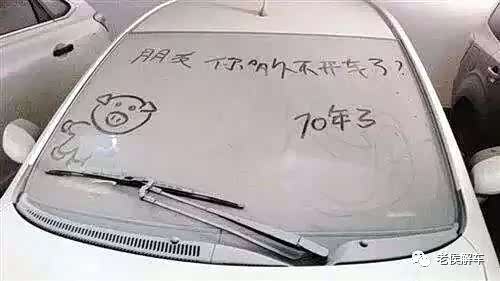 朋友 你多久不开车了?
10年了
老侯解车